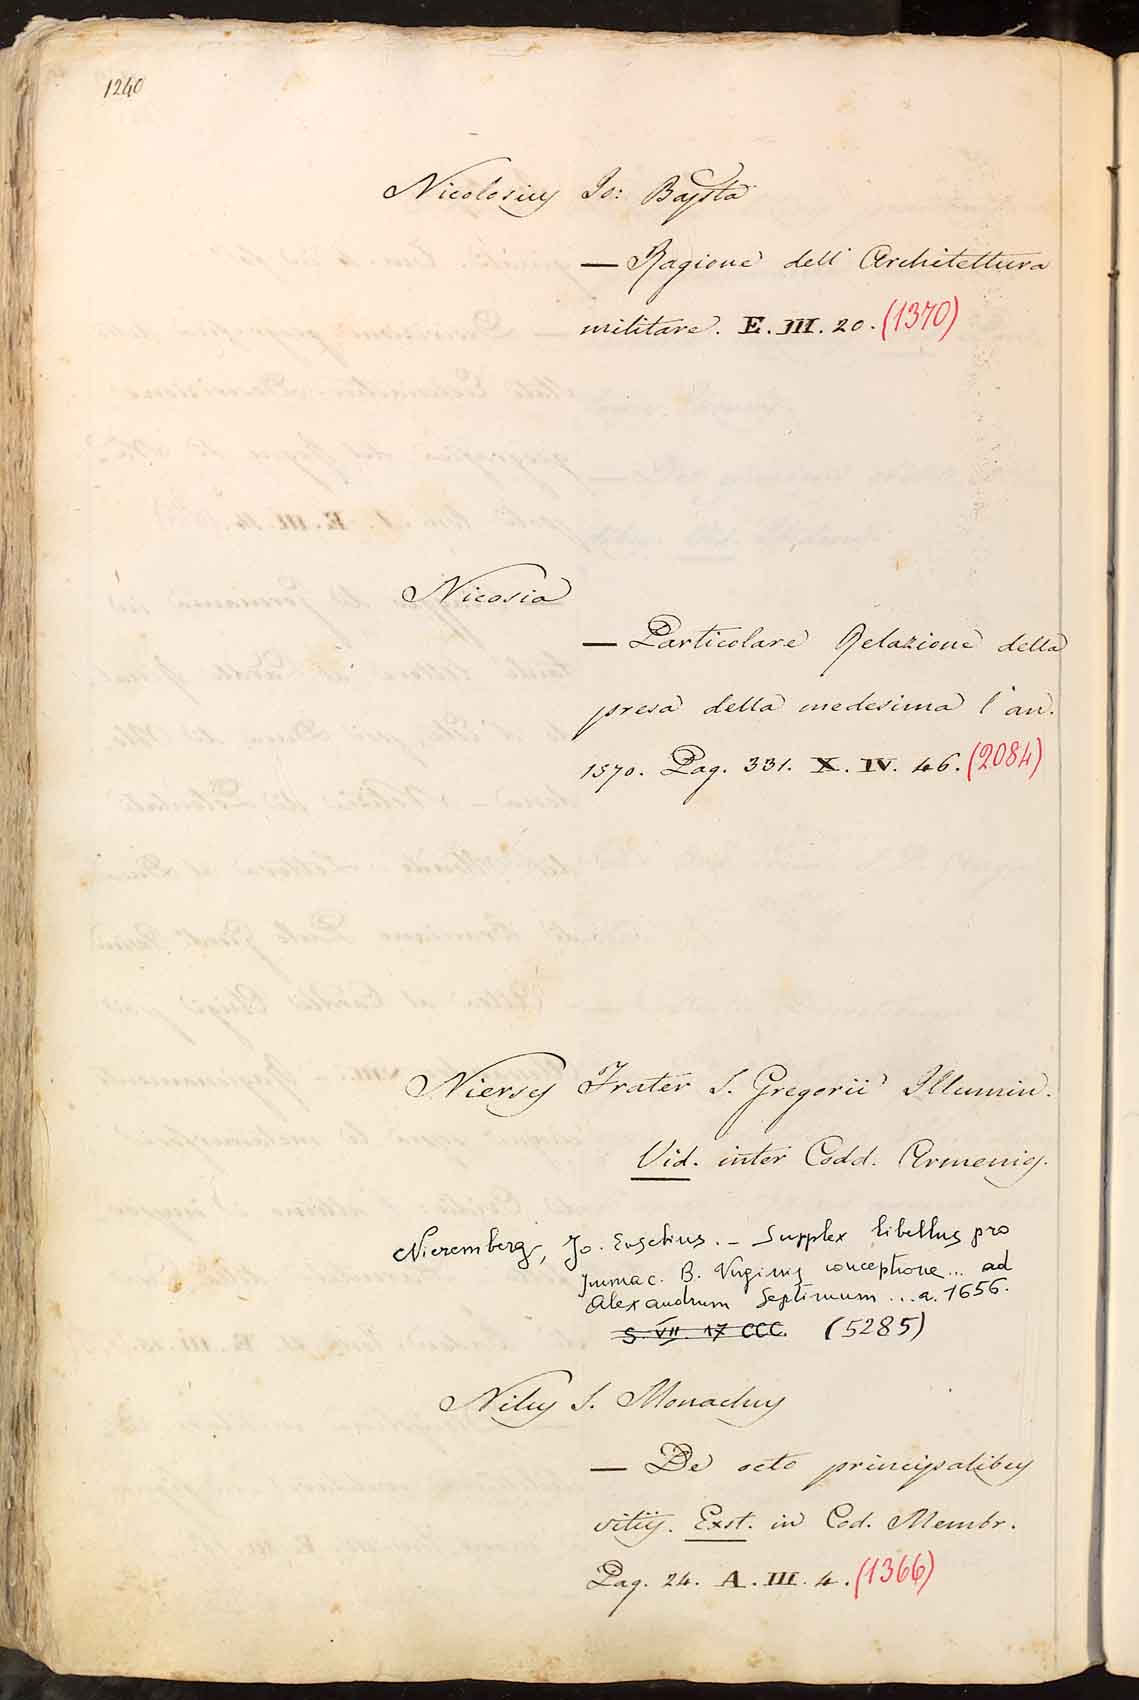 1240
Nicolosius Io: Bapsta
— Ragione dell' Architettura
militare. E. III. 20. (1370)
Nicosia
— Particolare Relazione della
presa della medesima l'an.
1570. Pag. 331. X. IV. 46. (2084)
Nierses Frater S. Gregorii Illumin.
Vid. inter Codd. Armenis.
Nieremberg, Jo. Eusebius. - Supplex libellus pro
Immac. B. Virginis conceptione... ad
Alexandrum Septimum ... a. 1656.
S. VII. 17 CCC. (5285)
Nilus S. Monachus
— De octo principalibus
vitiis. Exst. in Cod. Membr.
Pag. 24. A. III. 4. (1366)